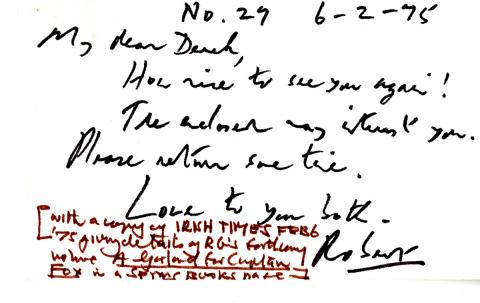 No. 29 6-2-75
My dear Derek,
How nice to see you again!
The enclosed may interest you.
Please return some time.
Love to you both.
Robert
[with a copy of IRISH TIMES FEB 6
'75 giving details of RG's forthcoming
volume A Garland for Captain
Fox in a SPTNS BOOKS name]